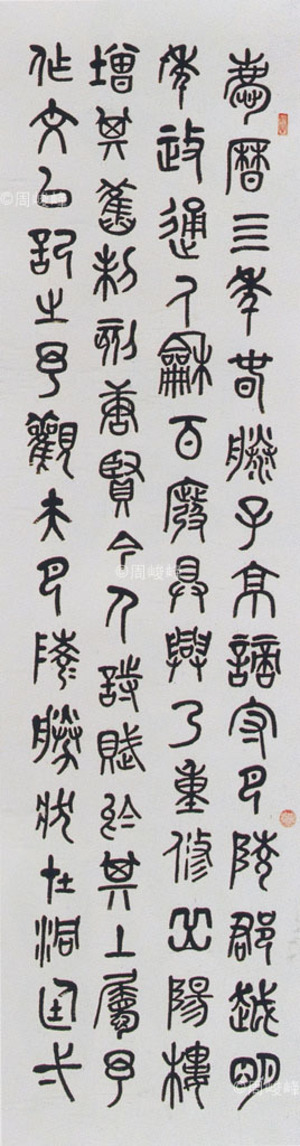 慶曆四年春滕子京謫守巴陵郡越明
年政通人龢百廢具興乃重修岳陽樓
增其舊制刻唐賢今人詩賦於其上屬予
作文以記之予觀夫巴陵勝狀在洞庭弌
©周峻峰
©周峻峰
©周峻峰